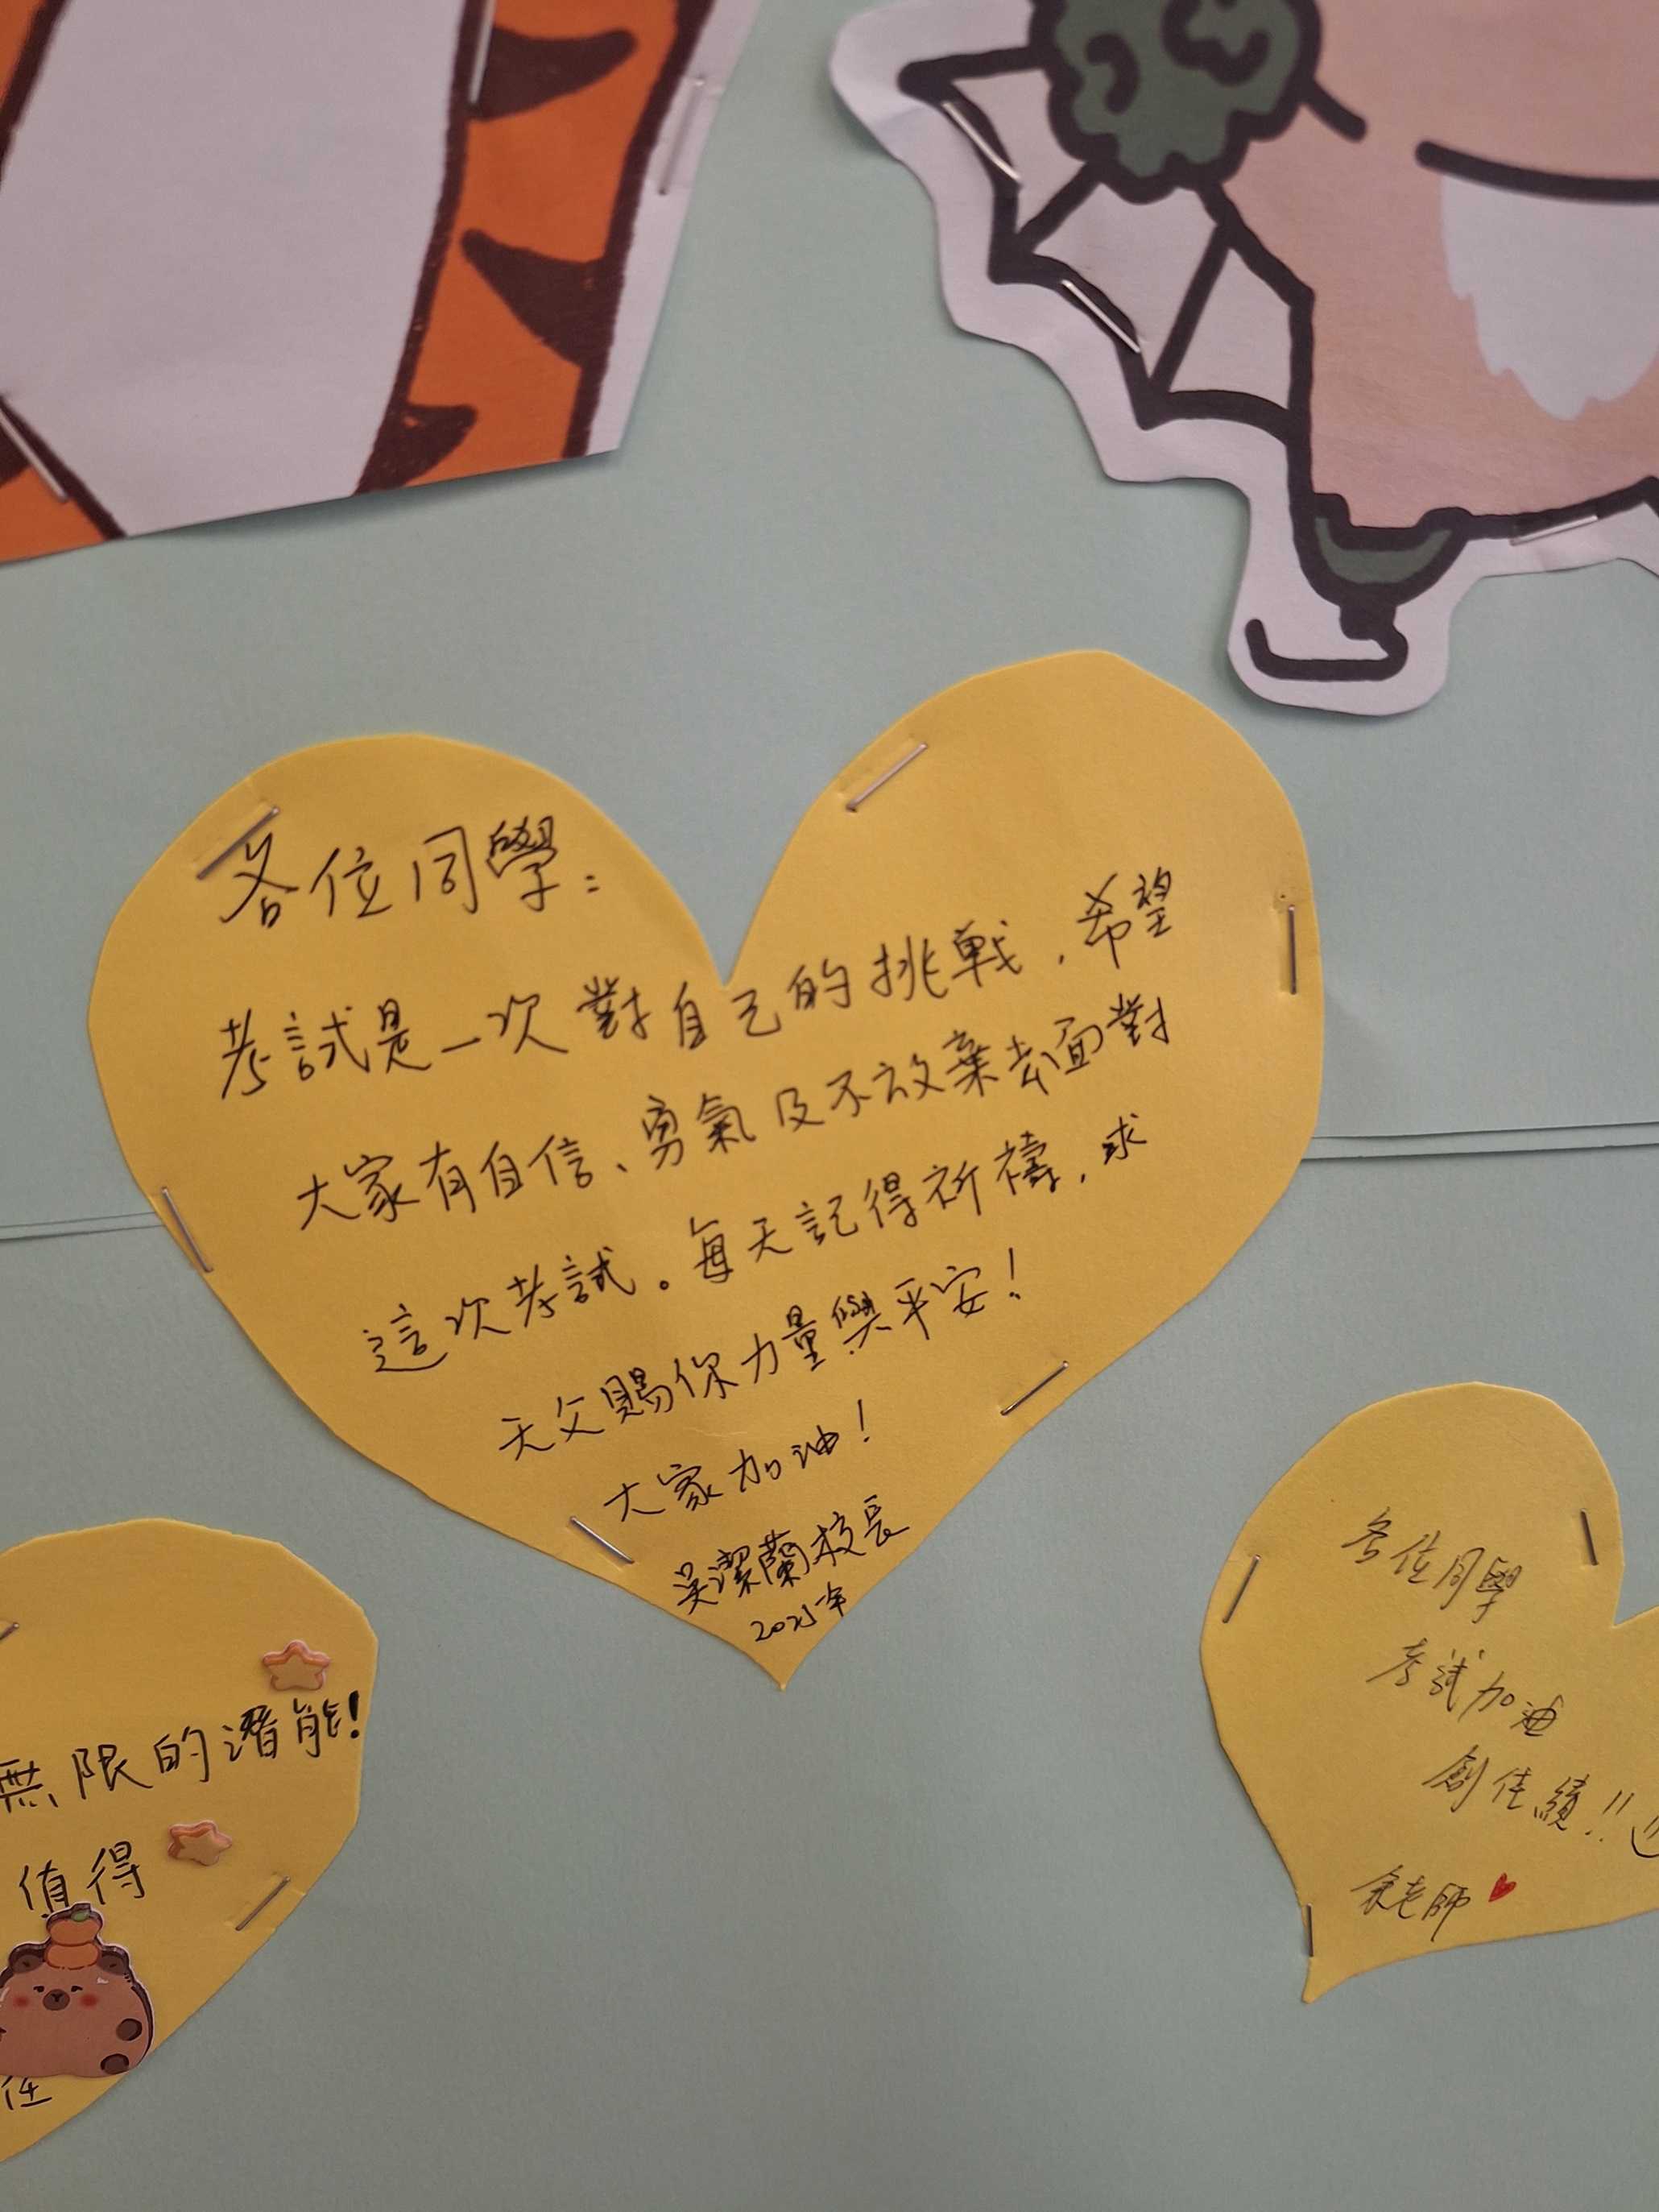 各位同學：
考試是一次對自己的挑戰，希望
大家有自信、勇氣及不放棄去面對
這次考試。每天記得祈禱，求
天父賜你力量與平安！
大家加油！
吳潔蘭校長
2025年
無限的潛能！
值得
任
各位同學
考試加油
創佳績！！
余老師